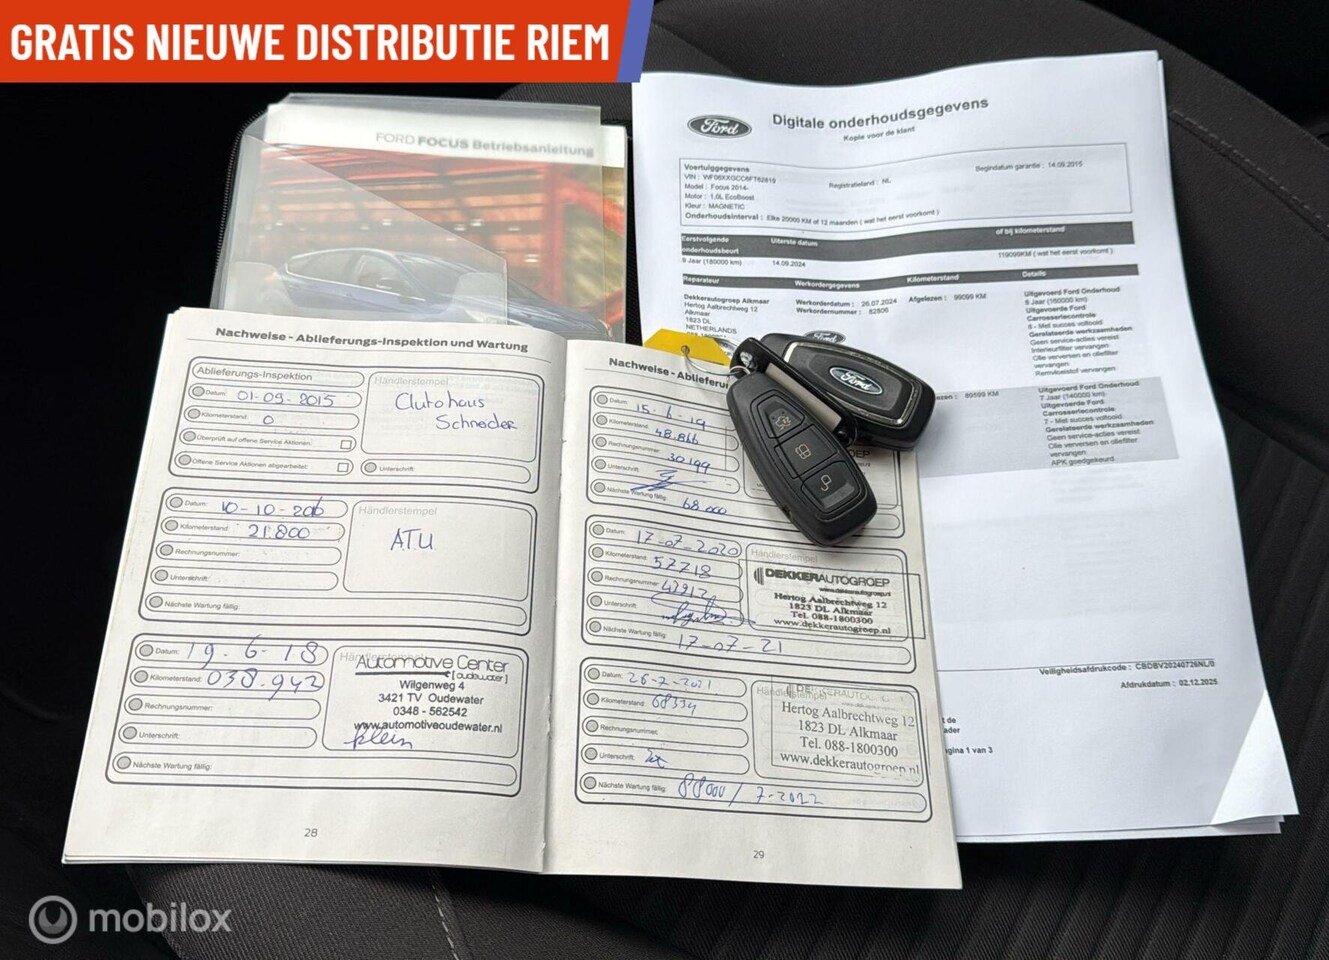 GRATIS NIEUWE DISTRIBUTIE RIEM
FORD FOCUS Betriebsanleitung
Ford
Digitale onderhoudsgegevens
Kopie voor de klant
Voertuiggegevens
Begindatum garantie : 14.09.2015
Registratieland : NL
Model : Focus 2014-
Motor : 1.0L EcoBoost
Kleur : MAGNETIC
Onderhoudsinterval : Elke 20000 KM of 12 maanden ( wat het eerst voorkomt )
Eerstvolgende onderhoudsbeurt
Uiterste datum
of bij kilometerstand
9 Jaar (180000 km)
14.09.2024
119099KM ( wat het eerst voorkomt )
Reparateur
Werkordergegevens
Kilometerstand
Details
Dekkerautogroep Alkmaar
Hertog Aalbrechtweg 12
Alkmaar
1823 DL
NETHERLANDS
Werkorderdatum : 26.07.2024
Werkordernummer : 82806
Afgelezen : 99099 KM
Uitgevoerd Ford Onderhoud
8 Jaar (160000 km)
Uitgevoerde Ford
Carrosseriecontrole
8 - Met succes voltooid
Gerelateerde werkzaamheden
Geen service-acties vereist
Interieurfilter vervangen
Olie verversen en oliefilter
vervangen
Remvloeistof vervangen
89599 KM
Uitgevoerd Ford Onderhoud
7 Jaar (140000 km)
Uitgevoerde Ford
Carrosseriecontrole
7 - Met succes voltooid
Gerelateerde werkzaamheden
Geen service-acties vereist
Olie verversen en oliefilter
vervangen
APK goedgekeurd
Veiligheidsafdrukcode : CBDBV20240726NL/0
Afdrukdatum : 02.12.2025
t de
ader
gina 1 van 3
Nachweise - Ablieferungs-Inspektion und Wartung
Ablieferungs-Inspektion
Händlerstempel
Datum: 01-09-2015
Autohaus
Schneder
Kilometerstand: 0
Überprüft auf offene Service Aktionen:
Offene Service Aktionen abgearbeitet:
Unterschrift:
Datum: 10-10-2016
Händlerstempel
Kilometerstand: 21.800
ATU
Rechnungsnummer:
Unterschrift:
Nächste Wartung fällig:
Datum: 19.6-18
Händlerstempel
Kilometerstand: 038.942
Automotive Center
[oudewater]
Wilgenweg 4
3421 TV Oudewater
0348 - 562542
www.automotiveoudewater.nl
Rechnungsnummer:
Unterschrift:
Nächste Wartung fällig:
28
Nachweise - Ablieferu
Datum: 15-6-19
Kilometerstand: 48.866
Rechnungsnummer: 30199
Unterschrift:
Nächste Wartung fällig: 68.000
Datum: 17-07-2020
Händlerstempel
Kilometerstand: 57718
Rechnungsnummer: 42912
Unterschrift:
DEKKERAUTOGROEP
www.dekkerautogroep.nl
Hertog Aalbrechtweg 12
1823 DL Alkmaar
Tel. 088-1800300
www.dekkerautogroep.nl
Nächste Wartung fällig: 17-07-21
Datum: 26-7-2021
Händlerstempel
Kilometerstand: 68334
Rechnungsnummer:
Unterschrift:
DEKKERAUTOGROEP
Hertog Aalbrechtweg 12
1823 DL Alkmaar
Tel. 088-1800300
www.dekkerautogroep.nl
Nächste Wartung fällig: 88000 / 7-2022
29
Ford
mobilox